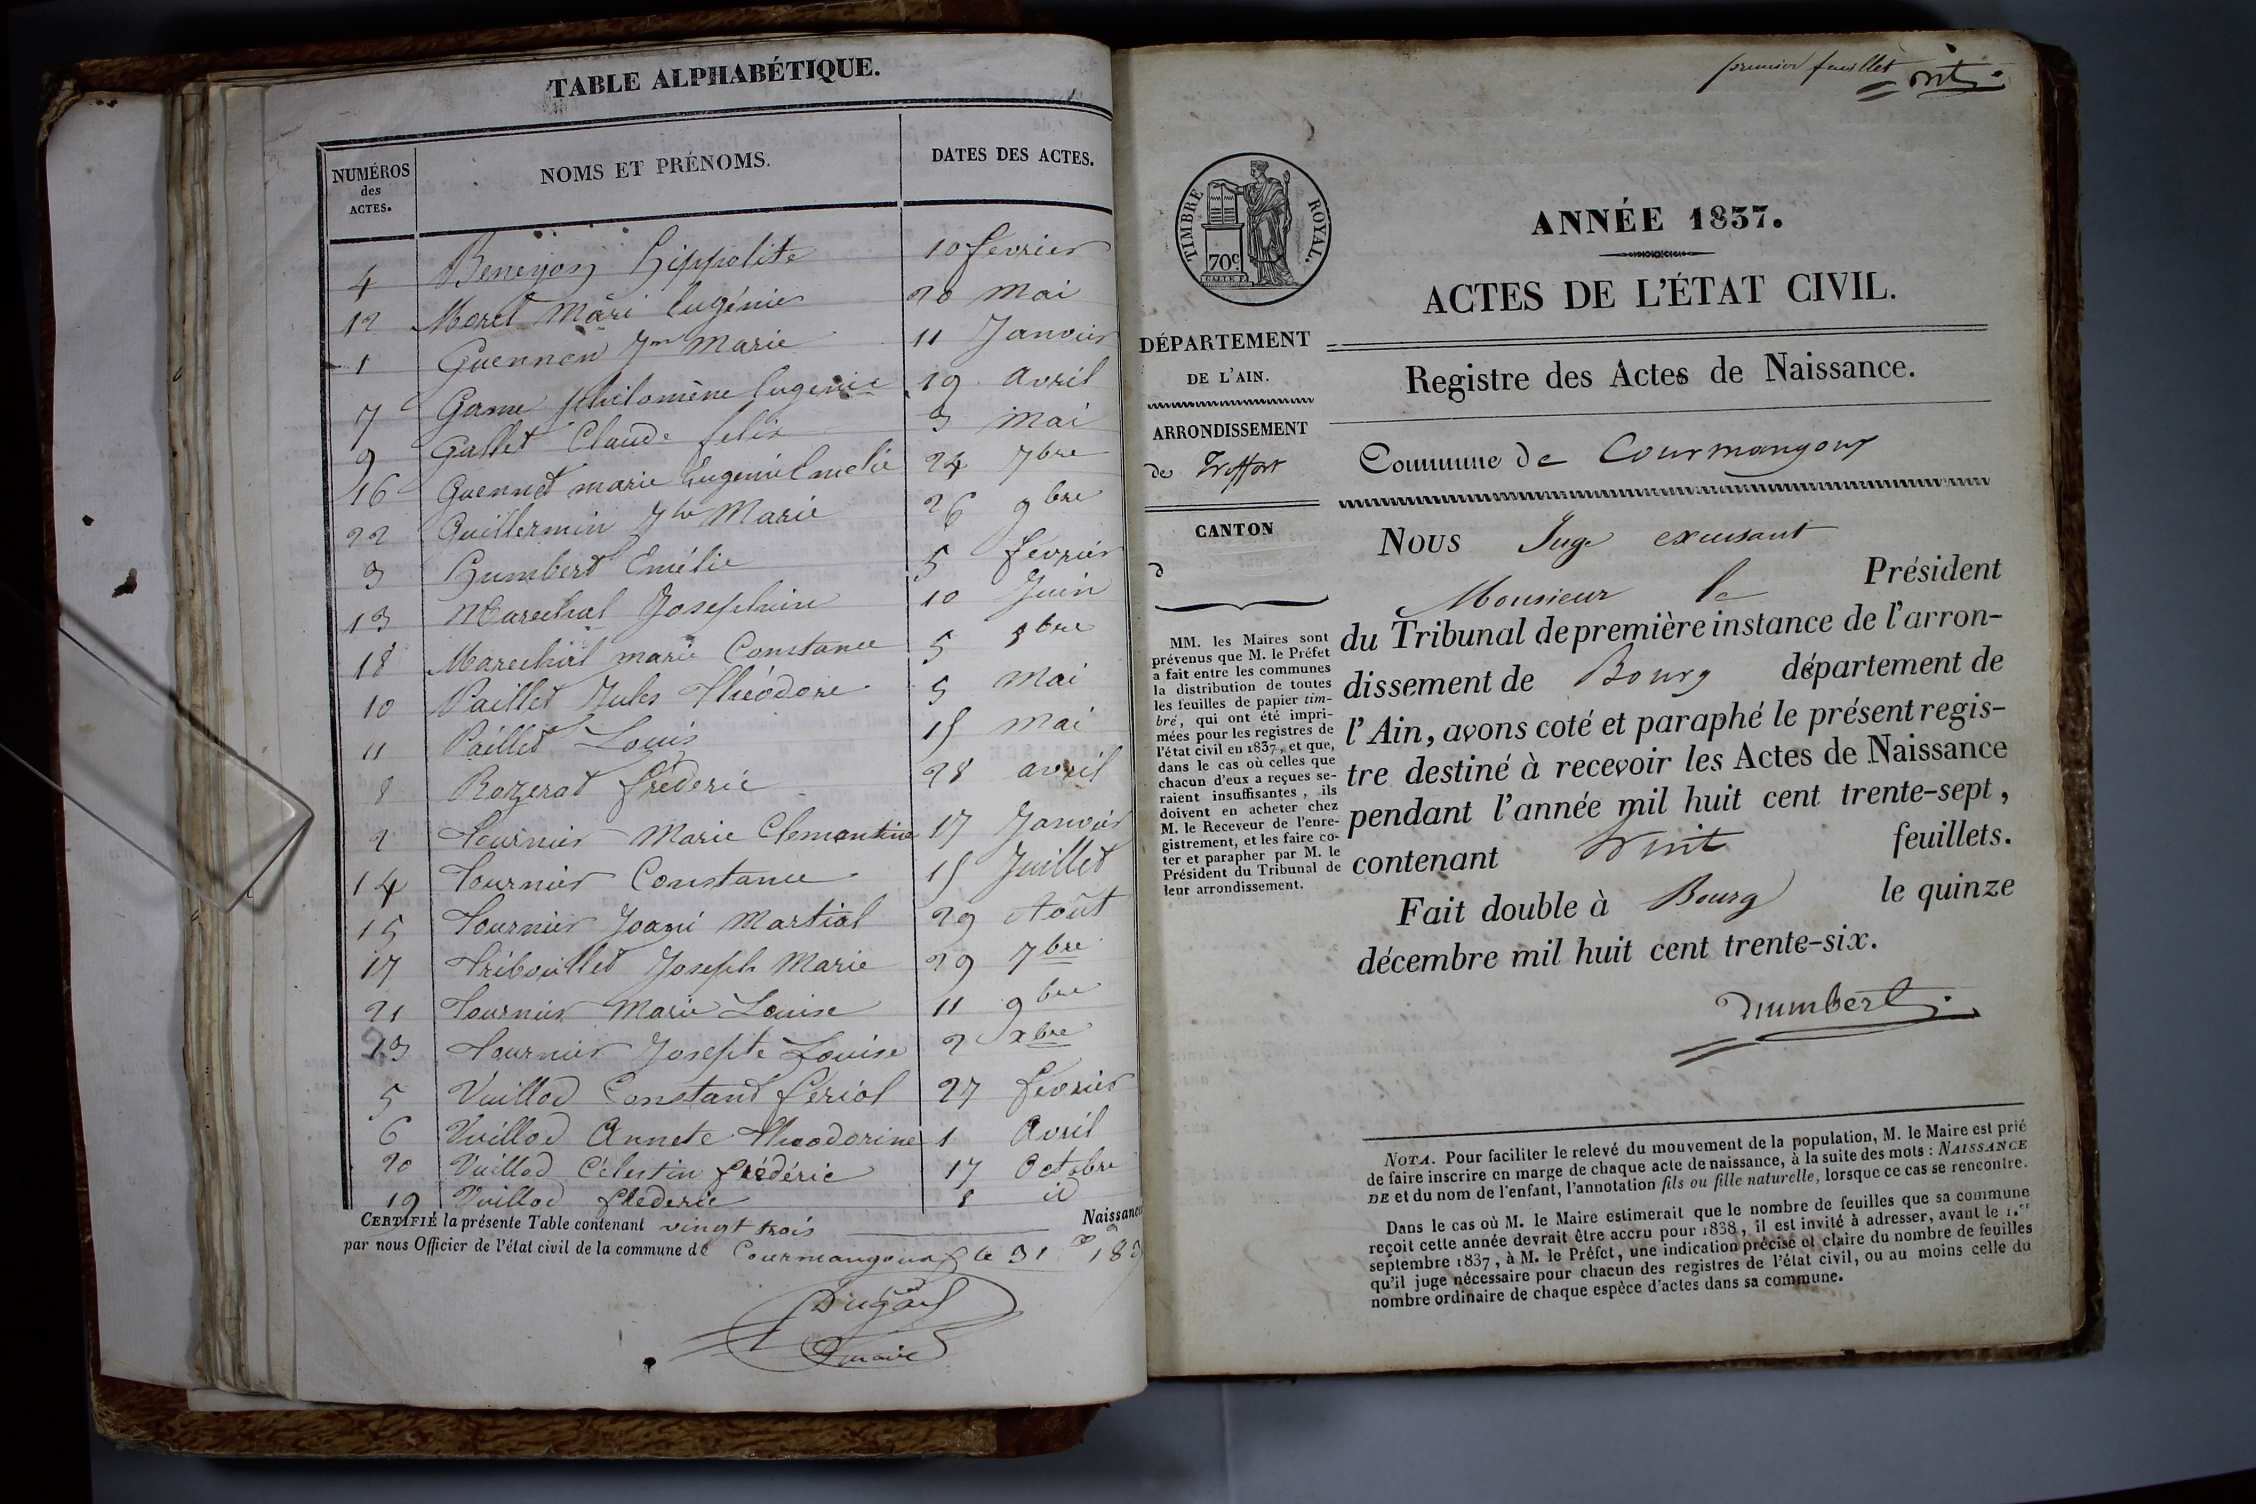 TABLE ALPHABÉTIQUE.
NUMÉROS des ACTES. NOMS ET PRÉNOMS. DATES DES ACTES.
4 Beneyon Hippolite 10 fevrier
12 Morel Mari Eugénie 20 Mai
1 Guennon Jne Marie 11 Janvier
7 Game philomène Eugenie 19 avril
9 Gallet Claude felix 3 Mai
16 Guennet marie Eugenie Emelie 24 7bre
22 Guillermin Marie 26 9bre
3 Humbert Emélie 5 fevrier
13 Marechal Josephine 10 Juin
18 Marechal marie Constance 5 8bre
10 Paillet Jules Théodore 5 Mai
11 Paillet Louis 15 Mai
8 Rozerat fréderic 28 avril
2 Tournier Marie Clemantine 17 Janvier
14 Tournier Constance 15 Juillet
15 Tournier Joani Martial 29 Août
17 Tribouillet Joseph Marie 29 7bre
21 Tournier Marie Louise 11 9bre
23 Tournier Josephte Louise 2 xbre
5 Vuillod Constant fériol 27 fevrier
6 Vuillod Annete Théodorine 1 Avril
20 Vuillod Célestin frédéric 17 Octobre
19 Vuillod fréderic 8 id
CERTIFIÉ la présente Table contenant vingt trois Naissance
par nous Officier de l'état civil de la commune de Courmangoux le 31 183
maire
premier feuillet
TIMBRE ROYAL.
70c
ANNÉE 1837.
ACTES DE L'ÉTAT CIVIL.
Registre des Actes de Naissance.
Commune de Courmangoux
DÉPARTEMENT
DE L'AIN.
ARRONDISSEMENT
de Treffort
CANTON
d
MM. les Maires sont
prévenus que M. le Préfet
a fait entre les communes
la distribution de toutes
les feuilles de papier tim-
bré, qui ont été impri-
mées pour les registres de
l'état civil en 1837, et que,
dans le cas où celles que
chacun d'eux a reçues se-
raient insuffisantes, ils
doivent en acheter chez
M. le Receveur de l'enre-
gistrement, et les faire co-
ter et parapher par M. le
Président du Tribunal de
leur arrondissement.
Nous Juge excusant
Monsieur le Président
du Tribunal de première instance de l'arron-
dissement de Bourg département de
l'Ain, avons coté et paraphé le présent regis-
tre destiné à recevoir les Actes de Naissance
pendant l'année mil huit cent trente-sept,
contenant feuillets.
Fait double à Bourg le quinze
décembre mil huit cent trente-six.
NOTA. Pour faciliter le relevé du mouvement de la population, M. le Maire est prié
de faire inscrire en marge de chaque acte de naissance, à la suite des mots : NAISSANCE
DE et du nom de l'enfant, l'annotation fils ou fille naturelle, lorsque ce cas se rencontre.
Dans le cas où M. le Maire estimerait que le nombre de feuilles que sa commune
reçoit cette année devrait être accru pour 1838, il est invité à adresser, avant le 1.er
septembre 1837, à M. le Préfet, une indication précise et claire du nombre de feuilles
qu'il juge nécessaire pour chacun des registres de l'état civil, ou au moins celle du
nombre ordinaire de chaque espèce d'actes dans sa commune.